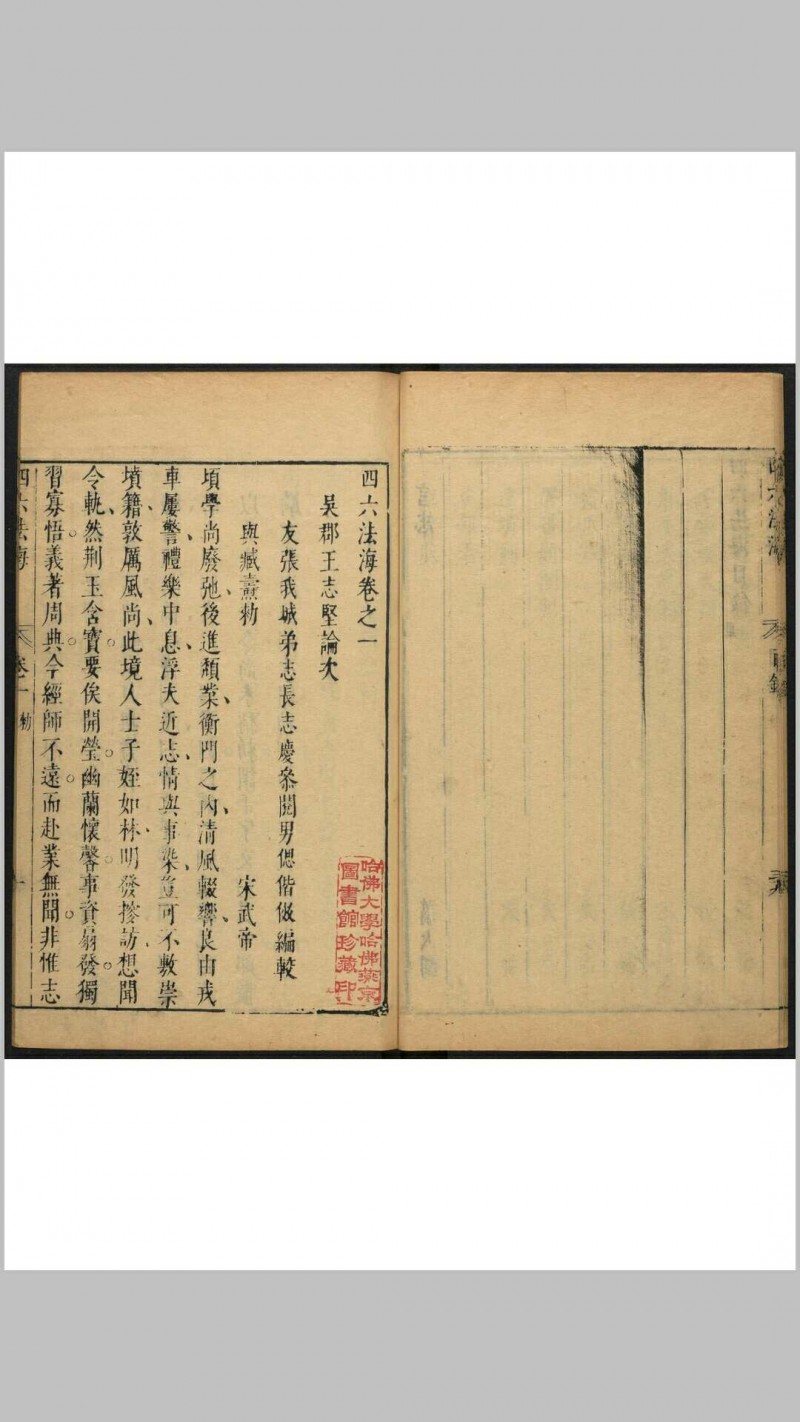 四六法海
目錄
四六法海卷之一
吳郡王志堅論次
友張我城弟志長志慶叅閱男偲偕倣編較
與臧燾勑
宋武帝
頃學尚廢弛後進頹業衡門之內清風輟響良由戎
車屢警禮樂中息浮夫近志情與事染豈可不敷崇
墳籍敦厲風尚此境人士子姪如林明發摻訪想聞
令軌然荆玉含寶要俟開瑩幽蘭懷馨事資扇發獨
習寡悟義著周典今經師不遠而赴業無聞非惟志
四六法海
卷一
勑
一
哈佛大學哈佛燕京
圖書館珍藏印